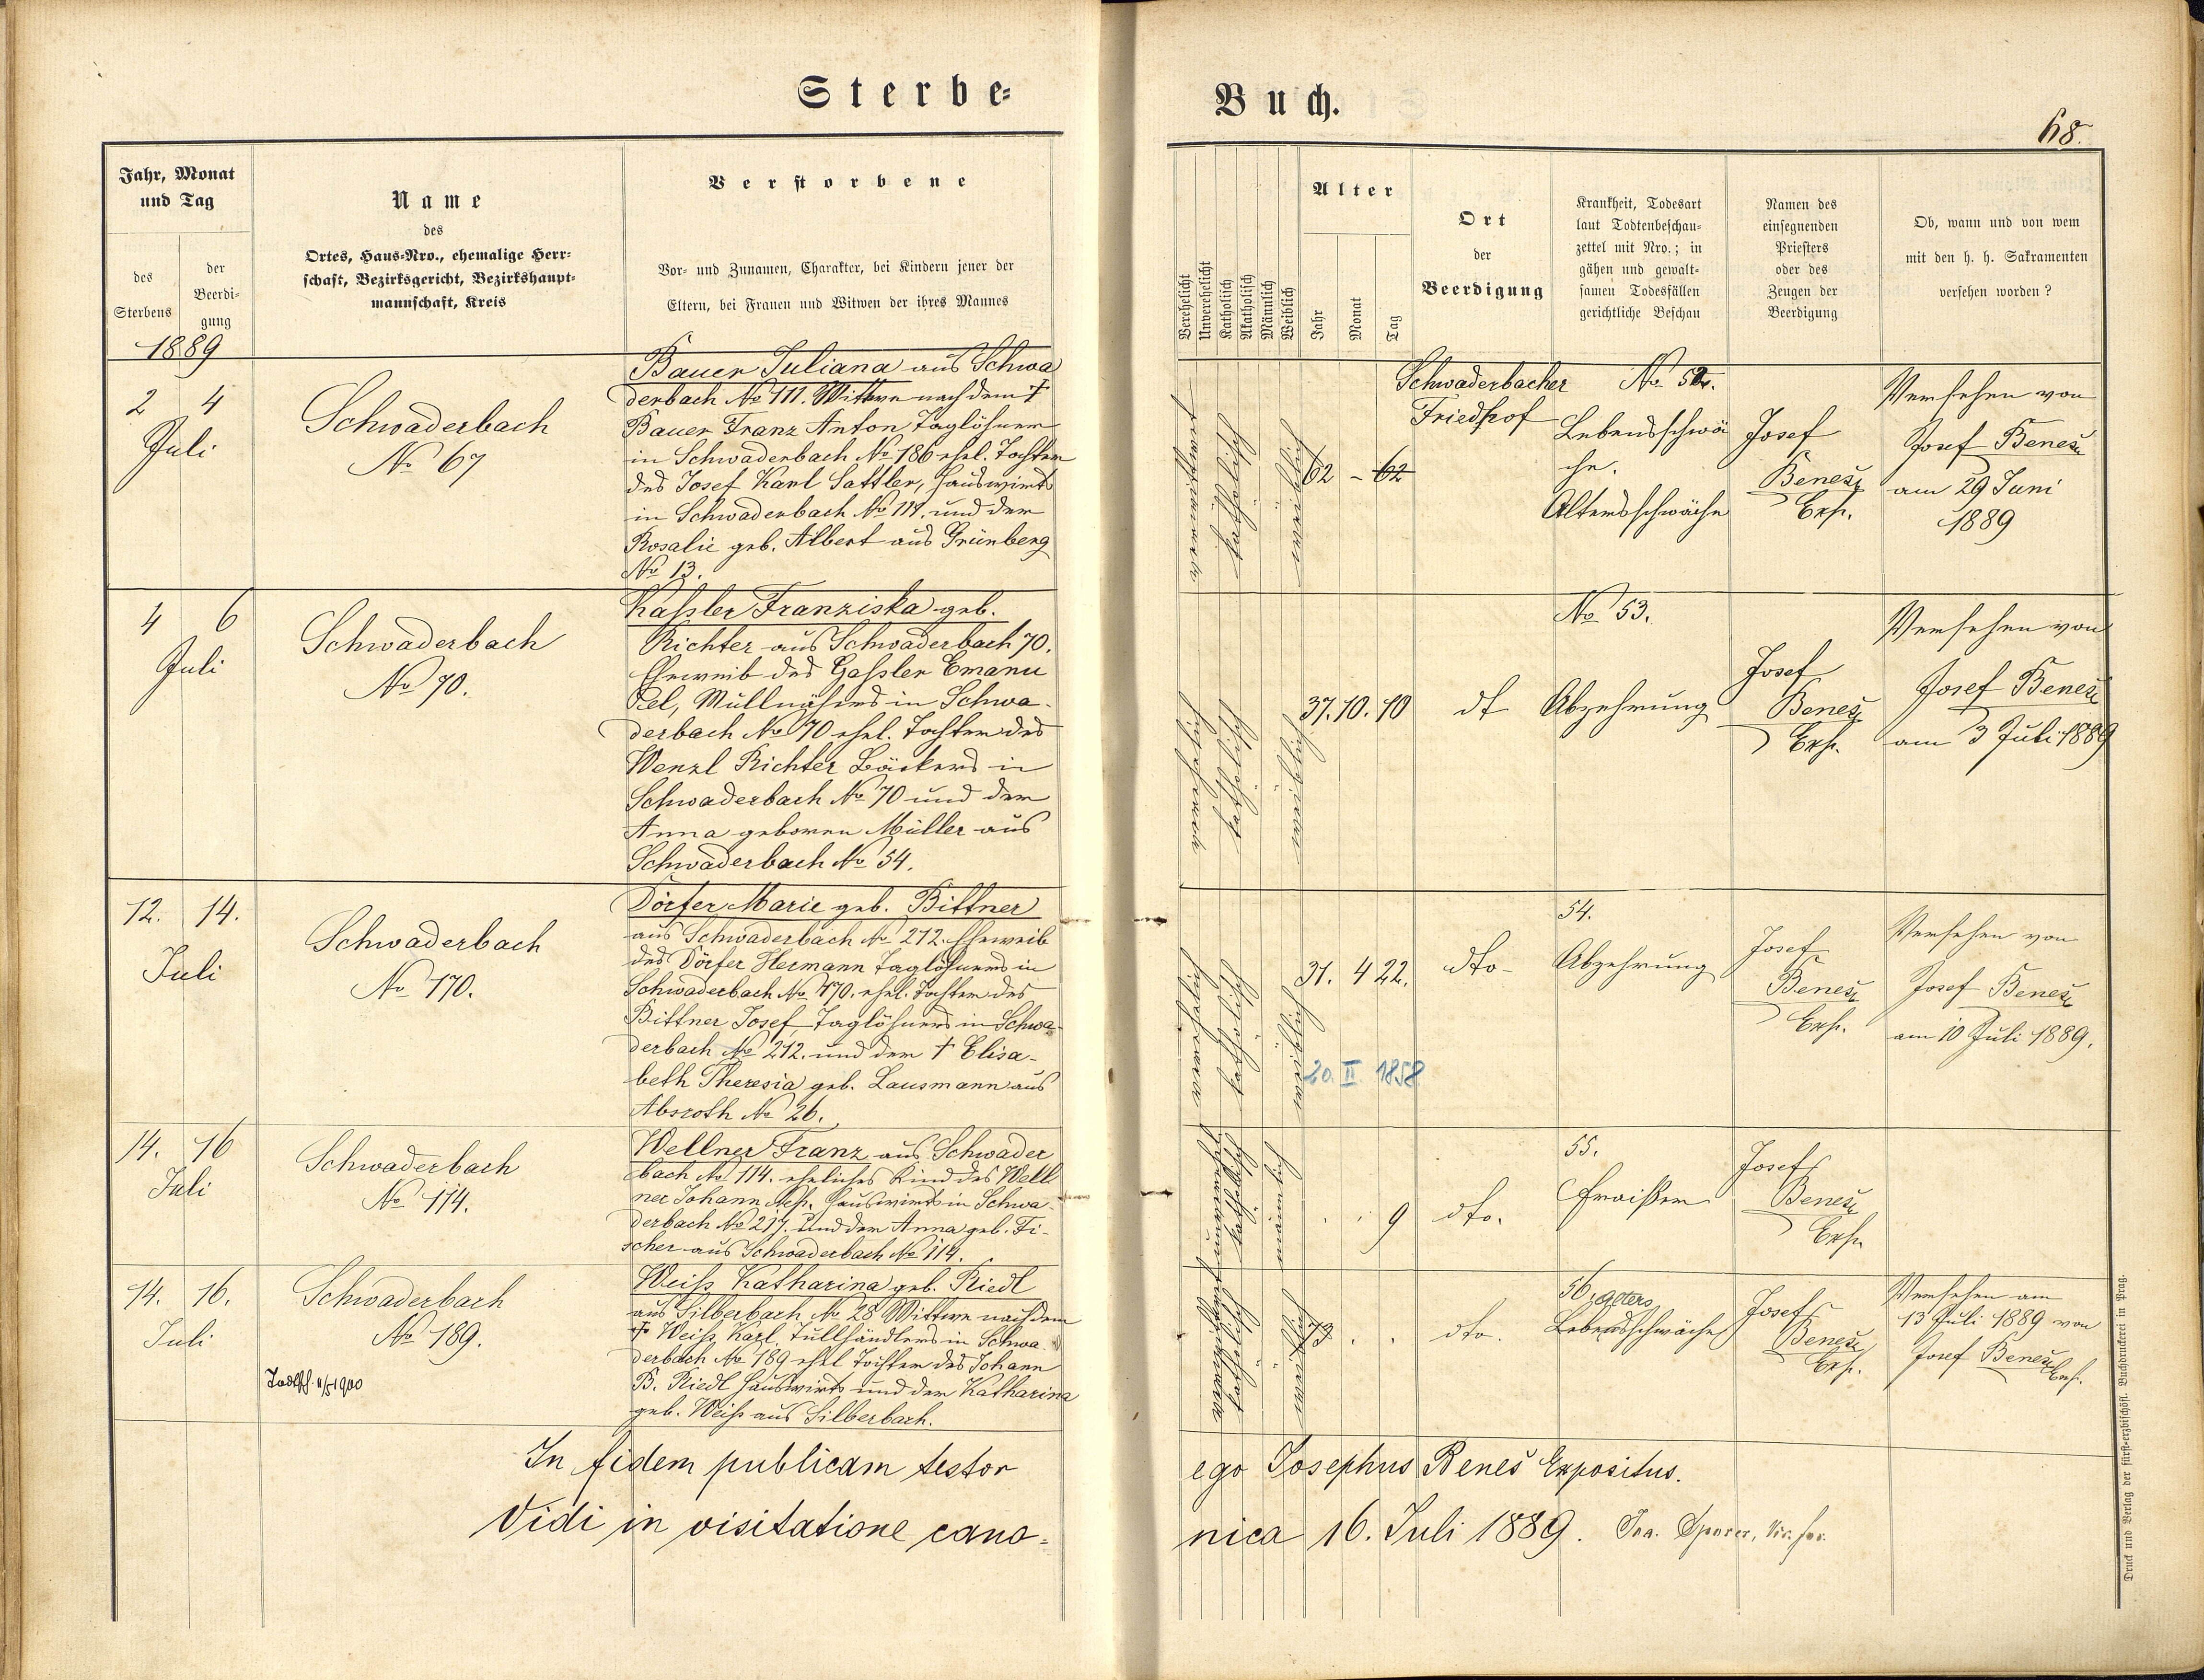 Sterbe-
Buch.
68.
Jahr, Monat
und Tag
des
Sterbens
der
Beerdi-
gung
1889
Name
des
Ortes, Haus-Nro., ehemalige Herr-
schaft, Bezirksgericht, Bezirkshaupt-
mannschaft, Kreis
Verstorbene
Vor- und Zunamen, Charakter, bei Kindern jener der
Eltern, bei Frauen und Witwen der ihres Mannes
Verehelicht
Unverehelicht
Katholisch
Akatholisch
Männlich
Weiblich
Alter
Jahr
Monat
Tag
Ort
der
Beerdigung
Krankheit, Todesart
laut Todtenbeschau-
zettel mit Nro.; in
gähen und gewalt-
samen Todesfällen
gerichtliche Beschau
Namen des
einsegnenden
Priesters
oder des
Zeugen der
Beerdigung
Ob, wann und von wem
mit den h. h. Sakramenten
versehen worden?
2 4
Juli
Schwaderbach
No 67
Bauer Juliana aus Schwa
derbach No 111. Wittwe nach dem †
Bauer Franz Anton Taglöhner
in Schwaderbach No 186 ehel. Tochter
des Josef Karl Sattler, Hauswirts
in Schwaderbach No 111. und der
Rosalie geb. Albert aus Grünberg
No 13.
verwittwet
katholisch
weiblich
62 - 62
Schwaderbacher
Friedhof
No 52.
Lebensschwä
che.
Altersschwäche
Josef
Beneš
Exp.
Versehen von
Josef Beneš
am 29 Juni
1889
4 6
Juli
Schwaderbach
No 70.
Kassler Franziska geb.
Richter aus Schwaderbach 70.
Eheweib des Gassler Emanu
el, Müllnähers in Schwa-
derbach No 70 ehel. Tochter des
Wenzl Richter Bäckers in
Schwaderbach No 70 und der
Anna geboren Müller aus
Schwaderbach No 54.
verehelich
katholisch
weiblich
37. 10. 10
dt
No 53.
Abzehrung
Josef
Beneš
Exp.
Versehen von
Josef Beneš
am 3 Juli 1889
12. 14.
Juli
Schwaderbach
No 170.
Dörfer Marie geb. Bittner
aus Schwaderbach No 212. Eheweib
des Dörfer Hermann Taglöhners in
Schwaderbach No 170. ehel. Tochter des
Bittner Josef Taglöhners in Schwa-
derbach No 212. und der † Elisa-
beth Theresia geb. Lausmann aus
Absroth No 26.
verehelich
katholisch
weiblich
31. 4 22.
20. II 1858
dto-
54.
Abzehrung
Josef
Beneš
Exp.
Versehen von
Josef Beneš
am 10 Juli 1889.
14. 16
Juli
Schwaderbach
No 114.
Wellner Franz aus Schwader
bach No 114. eheliches Kind des Well
ner Johann Hauswirts in Schwa-
derbach No 217. und der Anna geb. Fi-
scher aus Schwaderbach No 114.
unverehel
katholisch
männlich
9
dto.
55.
Fraißen
Josef
Beneš
Exp.
14. 16.
Juli
Schwaderbach
No 189.
11/5 1900
Weiss Katharina geb. Riedl
aus Silberbach No 28 Wittwe nach dem
† Weiss Karl, Tüllhändlers in Schwa-
derbach No 189 ehel Tochter des Johann
B. Riedl Hauswirts und der Katharina
geb. Weiss aus Silberbach.
verwittwet
katholisch
weiblich
73 . .
dto.
56. Alters
Lebensschwäche
Josef
Beneš
Exp.
Versehen am
13 Juli 1889 von
Josef Beneš Exp.
In fidem publicam testor
ego Josephus Beneš Expositus.
Vidi in visitatione cano-
nica 16. Juli 1889. Vic. for.
Druck und Verlag der fürst-erzbischöfl. Buchdruckerei in Prag.